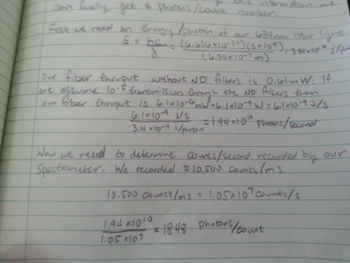 can finally get a photons/count number.
First we need an Energy/photon of our 632nm laser light
E = hc/λ = (6.626×10⁻³⁴)(3×10⁸) / (6.32×10⁻⁷ m) = 3.14×10⁻¹⁹ J/photon
Our fiber thruput without ND filters is 0.61mW. If
we assume 10⁻⁵ transmission through the ND filters then
our fiber thruput is 6.1×10⁻⁶ mW = 6.1×10⁻⁹ W = 6.1×10⁻⁹ J/s
6.1×10⁻⁹ J/s / 3.14×10⁻¹⁹ J/photon = 1.94×10¹⁰ photons/second
Now we need to determine counts/second recorded by our
spectrometer. We recorded ≈ 10,500 counts/ms.
10,500 counts/ms = 1.05×10⁷ counts/s
1.94×10¹⁰ / 1.05×10⁷ = 1848 photons/count